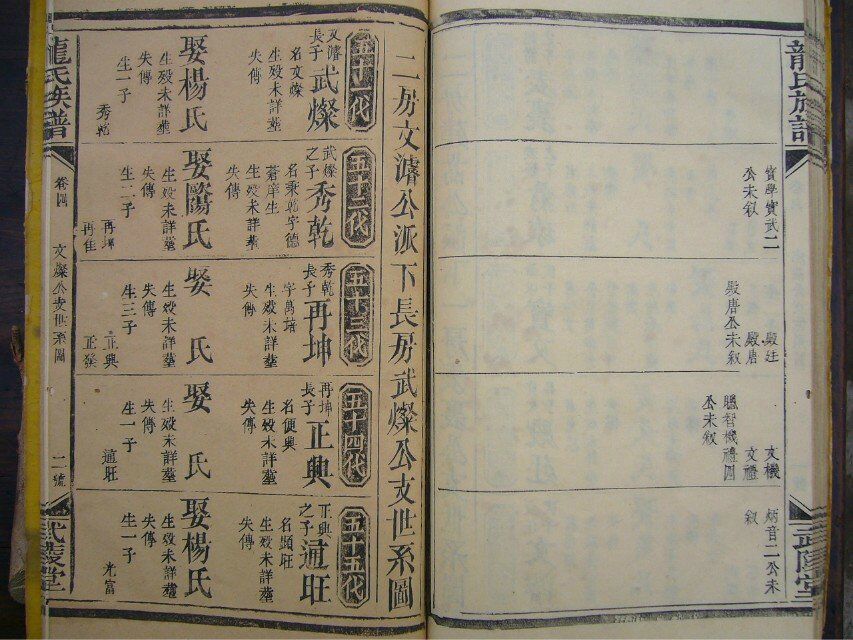 龍氏族譜
實學實武二
公未叙
殿廷
殿唐
殿唐公未叙
文機
文禮
公未叙
炳音二公未
叙
武陵堂
二房文濬公派下長房武燦公支世系圖
五十一代
文濬
長子
武燦
名文燦
生歿未詳塟
失傳
娶楊氏
生歿未詳塟
失傳
生一子
秀乾
五十二代
武燦
之子
秀乾
名秉乾字德
蒼庠生
生歿未詳塟
失傳
娶陽氏
生歿未詳塟
失傳
生二子
再坤
再隹
五十三代
秀乾
長子
再坤
生歿未詳塟
失傳
娶 氏
生歿未詳塟
失傳
生三子
正興
五十四代
再坤
長子
正興
生歿未詳塟
失傳
娶 氏
生歿未詳塟
失傳
生一子
通旺
五十五代
正興
之子
通旺
名顕旺
生歿未詳塟
失傳
娶楊氏
生歿未詳塟
失傳
生一子
光富
龍氏族譜
卷四
文燦公支世系圖
二號
武陵堂